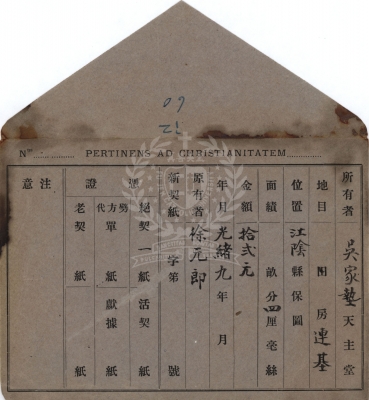 09
72
Nº. PERTINENS AD CHRISTIANITATEM
所有者 吳家墊天主堂
地目 田 房 連基
位置 江陰縣保圖
面積 畝分四厘毫絲
金額 拾弍元
年月 光緒九年 月
原有者 徐元郎
新契紙 字第 號
證 號
絕契一紙 活契 紙
代方單 紙 獻據 紙
老契 紙 紙
注意